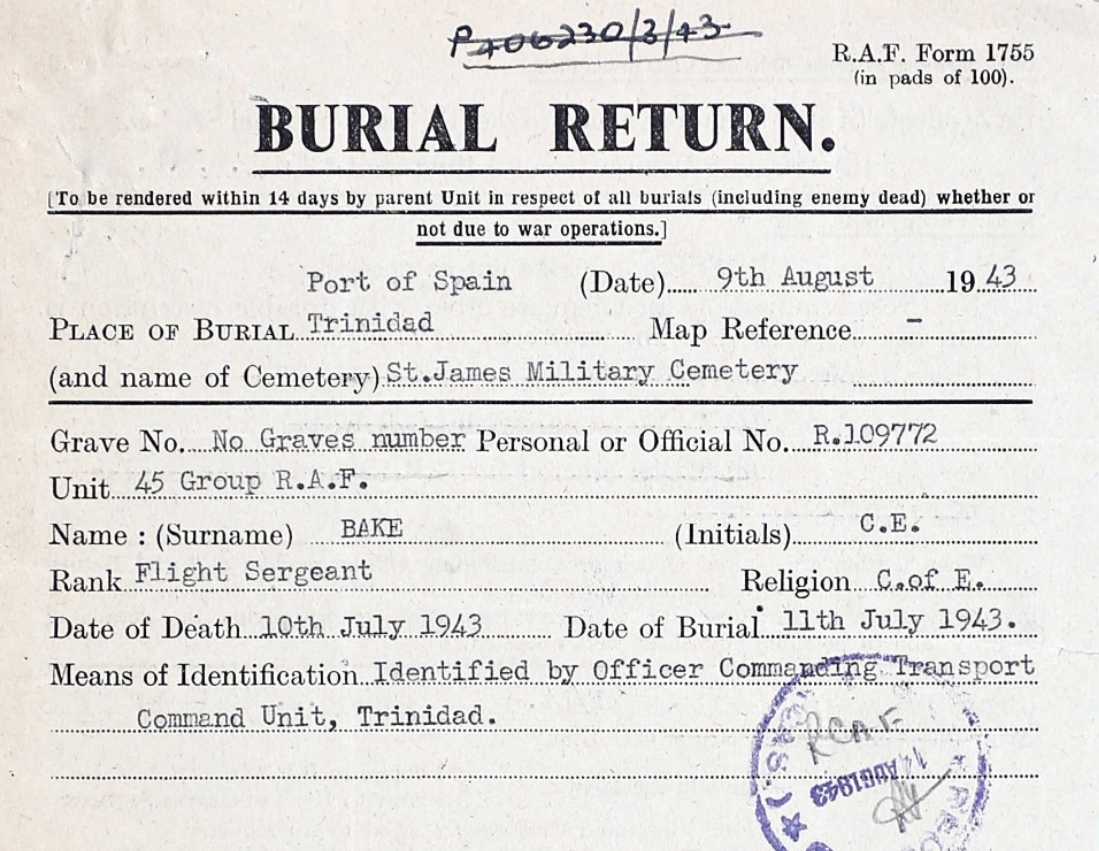 P406230/3/43
R.A.F. Form 1755
(in pads of 100).
BURIAL RETURN.
[To be rendered within 14 days by parent Unit in respect of all burials (including enemy dead) whether or
not due to war operations.]
Port of Spain (Date) 9th August 1943
PLACE OF BURIAL Trinidad Map Reference -
(and name of Cemetery) St.James Military Cemetery
Grave No. No Graves number Personal or Official No. R.109772
Unit 45 Group R.A.F.
Name : (Surname) BAKE (Initials) C.E.
Rank Flight Sergeant Religion C.of E.
Date of Death 10th July 1943 Date of Burial 11th July 1943.
Means of Identification Identified by Officer Commanding Transport
Command Unit, Trinidad.
RCAF
14 AUG 1943